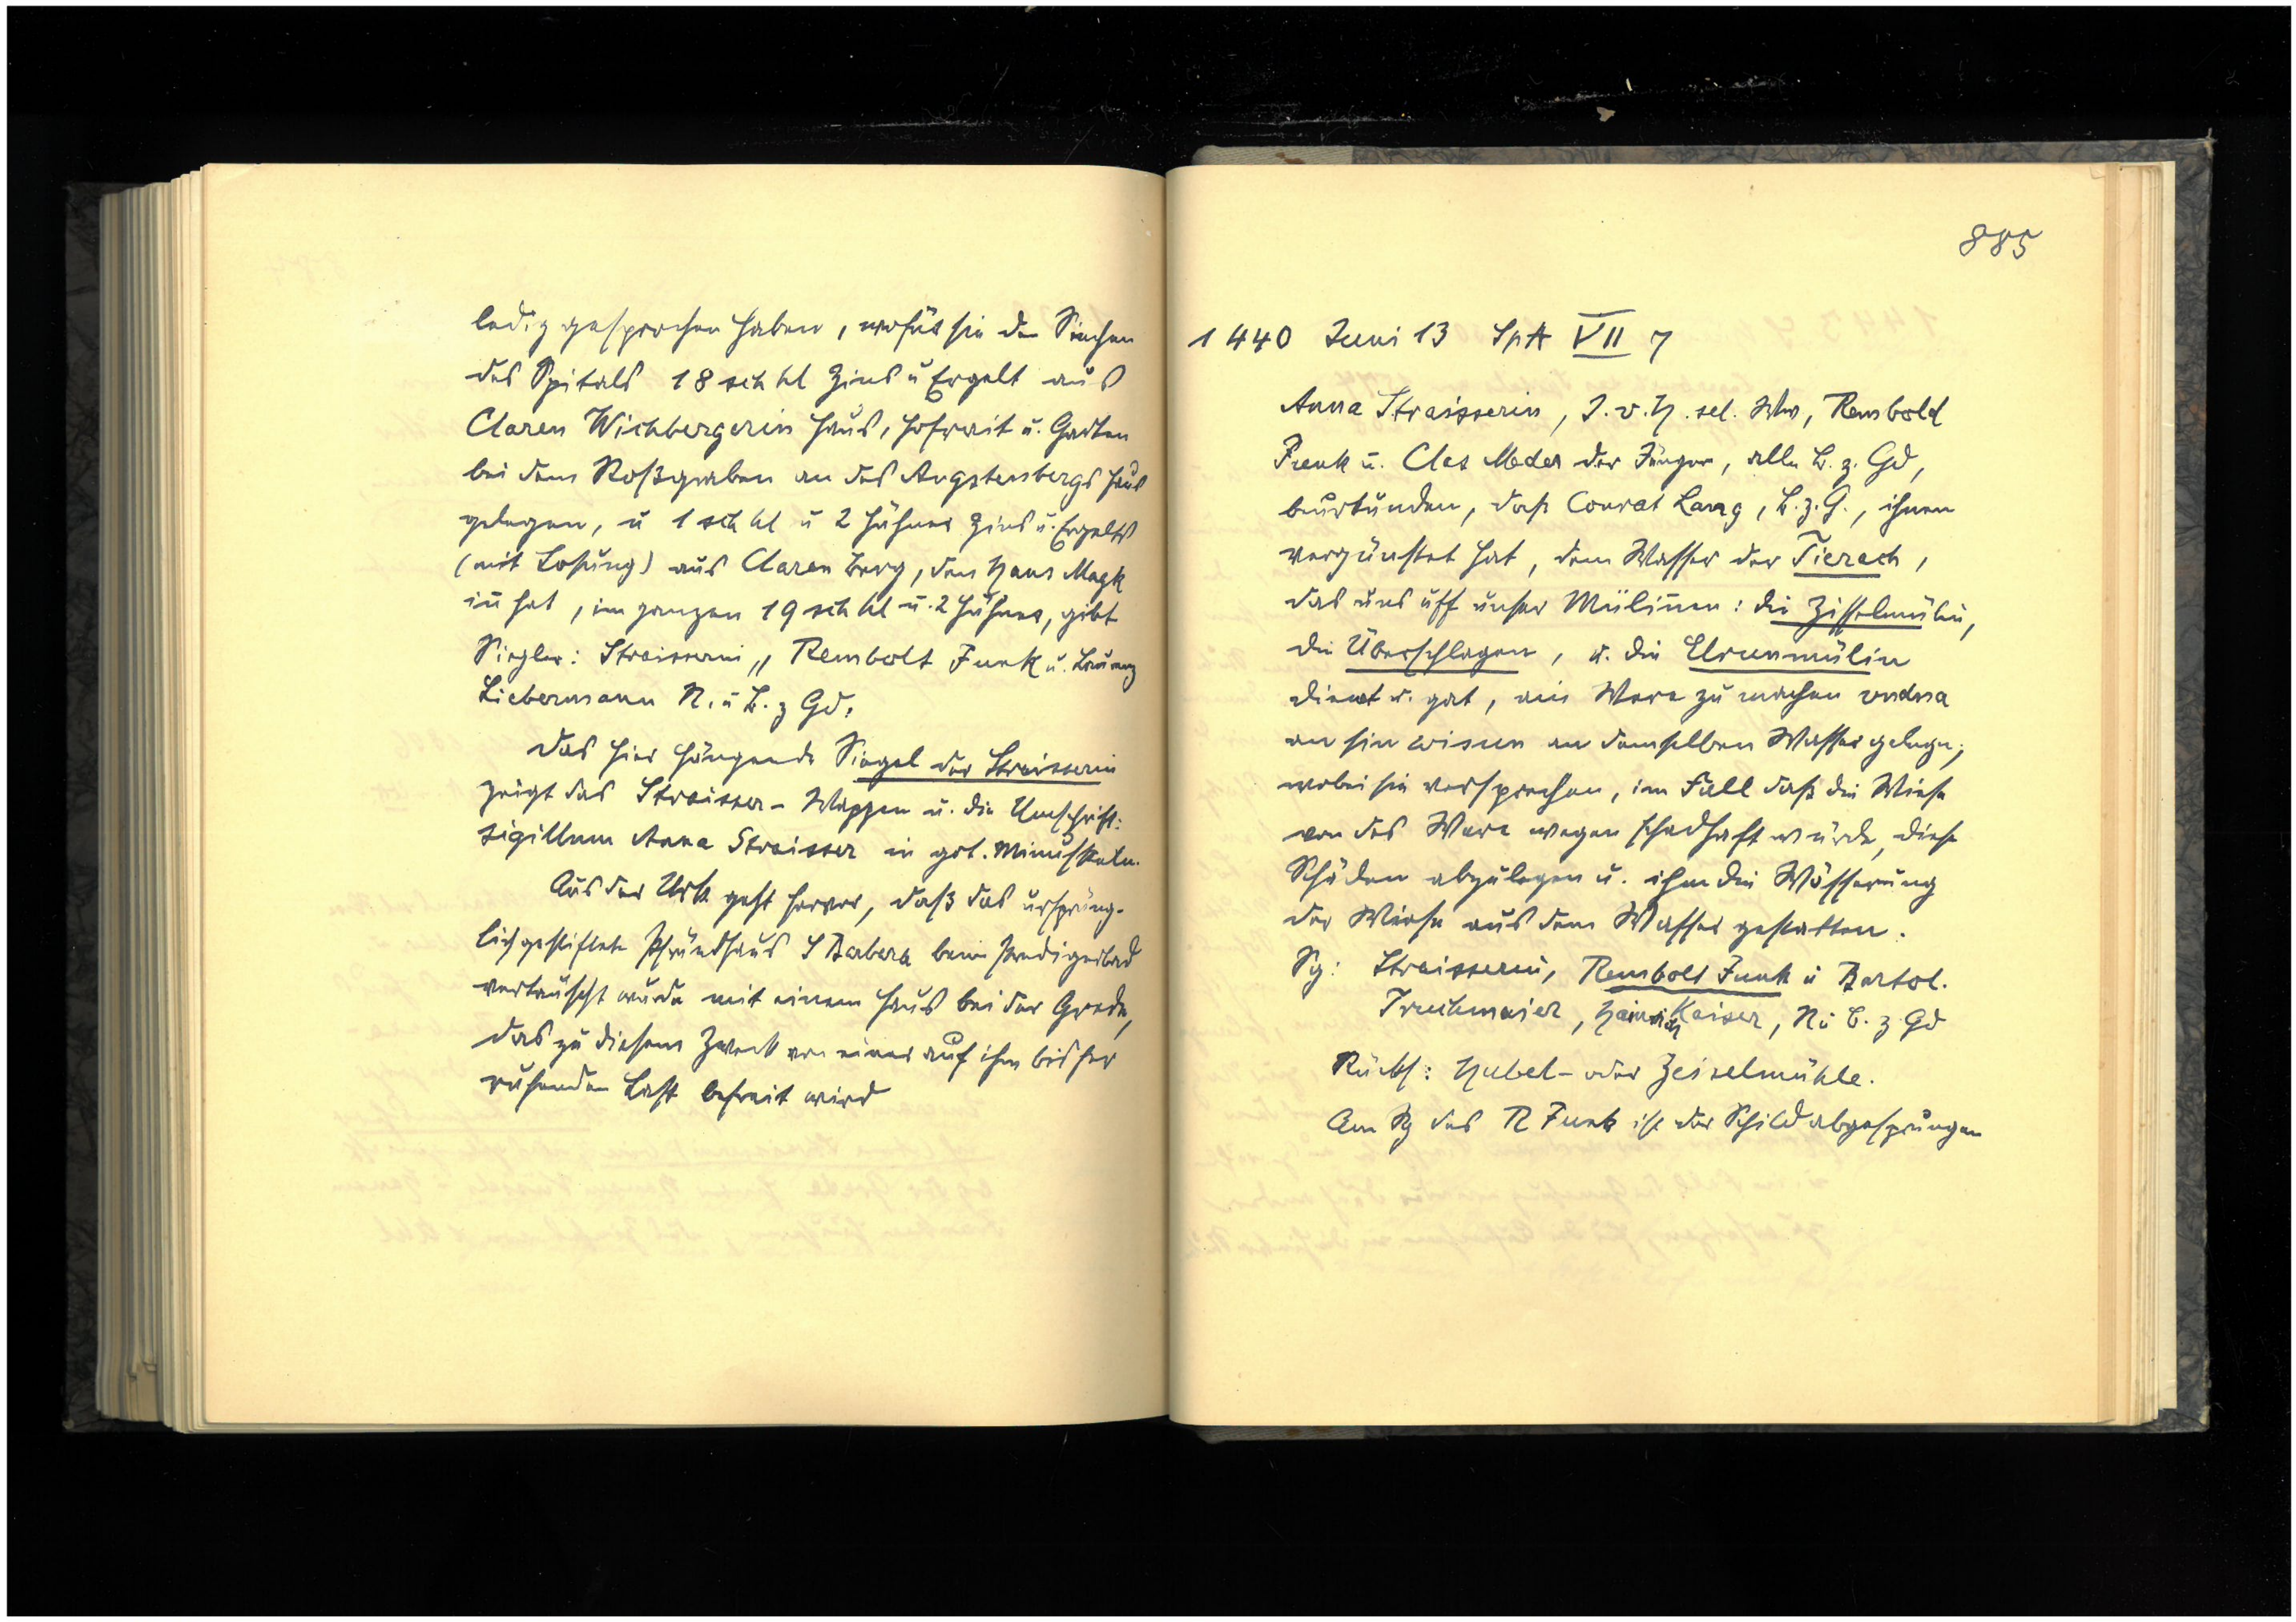 ledig gesprochen haben, wofür sie den Siechen
des Spitals 18 sch hl Zins u Ergelt aus
Claren Wichbergerin Haus, Hofrait u. Garten
bei dem Roßgraben an des Augstenbergs Haus
gelegen, u 1 sch hl u 2 Hühner Zins u. Ergelts
(mit Losung) aus Claren Berg, den Hans Magk
in hat, im ganzen 19 sch hl u. 2 Hühner, gibt
Siegler: Straisserin, Rembolt Funk u. Laurenz
Liebermann R. u B. z Gd.
Das hier hängende Siegel der Straisserin
zeigt das Straisser-Wappen u. die Umschrift:
sigillum Anna Straisser in got. Minuskeln.
Aus der Urk geht hervor, daß das ursprüng-
lich gestiftete Pfründhaus S Barbara beim Predigerbad
vertauscht wurde mit einem Haus bei der Grede,
das zu diesem Zweck von einer auf ihm bisher
ruhenden Last befreit wird
885
1440 Juni 13 SpA VII 7
Anna Straisserin, J. v. H. sel. Ww, Rembold
Funk u. Clas Meder der Jünger, alle B. z. Gd,
beurkunden, daß Conrat Lang, B. z. G., ihnen
vergünstet hat, dem Wasser der Tierach,
das uns uff unser Mülinen: die Zisselmülin,
die Überschlagen, u. die Urenmülin
dienet u. gat, ain Ware zu machen
an sin wisen an demselben Wasser gelegen,
wobei sie versprechen, im Fall daß die Wiese
von des Ware wegen schadhaft würde, diese
Schäden abzulegen u. ihm die Wässerung
der Wiese aus dem Wasser gestatten.
Sg: Straisserin, Rembolt Funk u Bartol.
Truchmaier, Hainrich Kaiser, R u B. z Gd
Rücks: Hubel- oder Zeiselmühle.
Am Sg des R Funk ist der Schild abgesprungen